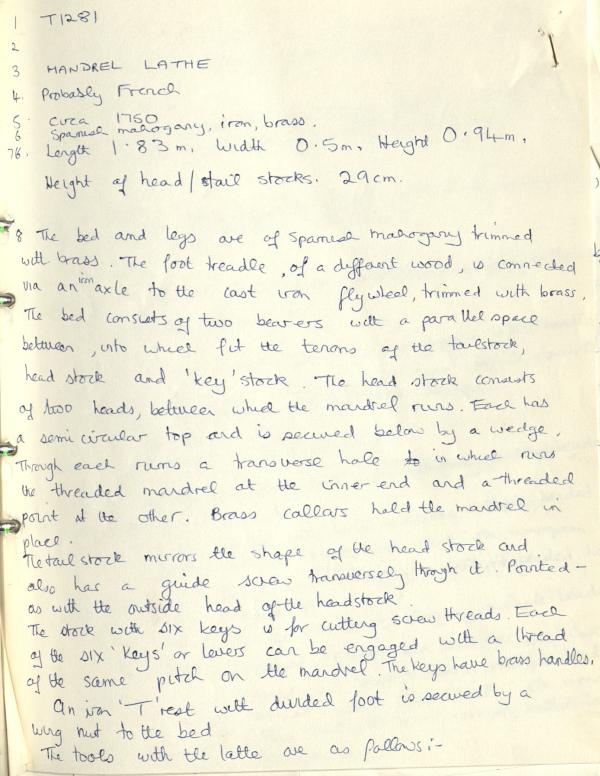 1 T1281
2
3 MANDREL LATHE
4. Probably French
5. circa 1750
6 Spanish mahogany, iron, brass.
7b. Length 1.83m, Width 0.5m, Height 0.94m,
Height of head/tail stocks. 29cm.
8 The bed and legs are of Spanish mahogany trimmed
with brass. The foot treadle, of a different wood, is connected
via an iron axle to the cast iron flywheel, trimmed with brass.
The bed consists of two bearers with a parallel space
between, into which fit the tenons of the tailstock,
head stock and 'key' stock. The head stock consists
of two heads, between which the mandrel runs. Each has
a semi circular top and is secured below by a wedge.
Through each runs a transverse hole in which runs
the threaded mandrel at the inner end and a threaded
point at the other. Brass collars hold the mandrel in
place.
The tail stock mirrors the shape of the head stock and
also has a guide screw transversely through it. Pointed -
as with the outside head of the headstock.
The stock with six keys is for cutting screw threads. Each
of the six 'keys' or levers can be engaged with a thread
of the same pitch on the mandrel. The keys have brass handles.
An iron 'T' rest with divided foot is secured by a
wing nut to the bed.
The tools with the latte are as follows:-